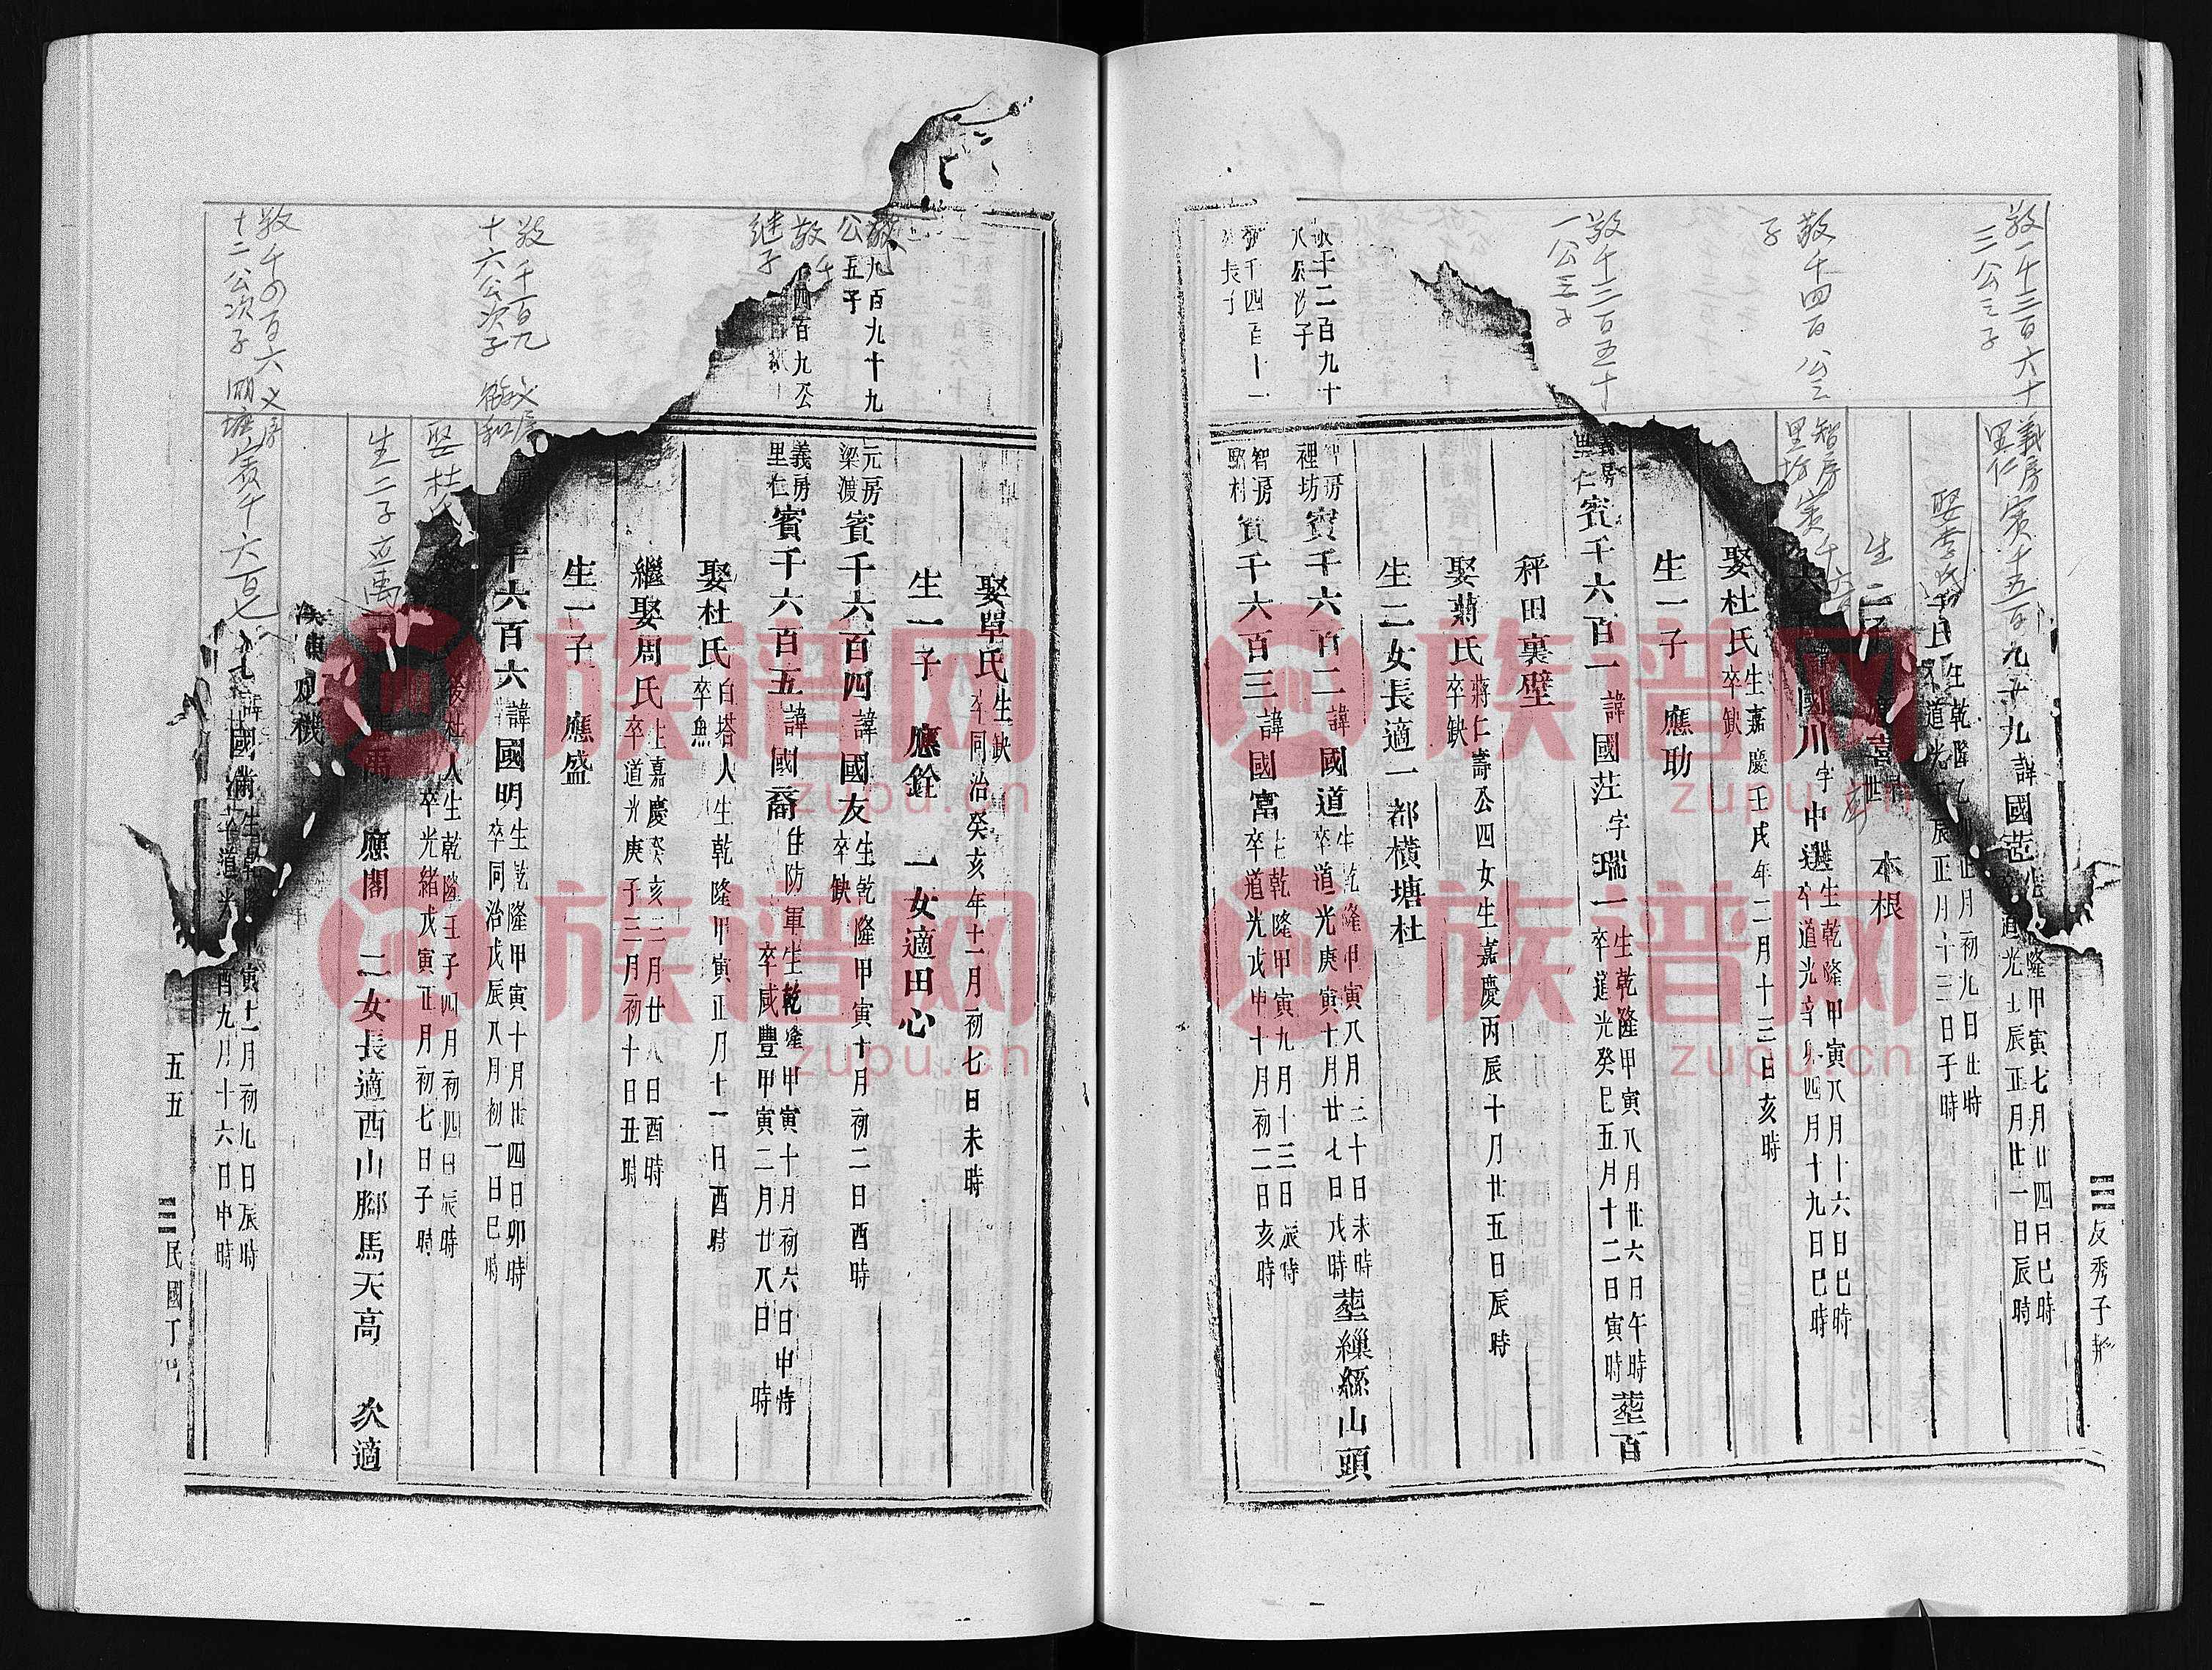 敬一千三百六十
三公三子
義房
里仁
賓千五百九十九諱國
隆甲寅七月廿四日巳時
道光壬辰正月廿一日辰時
娶李氏
生乾隆乙卯正月初九日丑時
道光壬辰正月十三日子時
生二子
喜
本根
敬千四百公三
子
智房
里坊
賓千六
國川字中選
生乾隆甲寅八月十六日巳時
卒道光辛卯四月十九日巳時
娶杜氏
生嘉慶壬戌年二月十三日亥時
卒缺
生一子 應助
敬千三百五十
一公三子
義房
里仁
賓千六百一諱國茳字瑞一
生乾隆甲寅八月廿六日午時
卒道光癸巳五月十二日寅時
葬百
秤田裏壁
娶蔣氏
蔣仁壽公四女生嘉慶丙辰十月廿五日辰時
卒缺
生二女長適一都橫塘杜
千二百九十
八公次子
房
裡坊
賓千六百二諱國道
生乾隆甲寅八月三十日未時
卒道光庚寅十月廿七日戌時
葬繅絲山頭
千四百十一
長子
智房
賓千六百三諱國富
生乾隆甲寅九月十三日辰時
卒道光戊申十月初二日亥時
反秀子
娶單氏
生缺
卒同治癸亥年十二月初七日未時
生一子 應銓 一女適田心
敬九百九十九
公五子
元房
梁渡
賓千六百四諱國友
生乾隆甲寅十月初二日酉時
卒缺
敬千四百九公
继子
義房
里仁
賓千六百五諱國裔
住防軍生乾隆甲寅十月初六日申時
卒咸豐甲寅二月廿八日 時
娶杜氏
白塔人生乾隆甲寅正月十一日酉時
卒魚
繼娶周氏
生嘉慶癸亥二月廿八日酉時
卒道光庚子三月初十日丑時
生一子 應盛
敬千百九
十六公次子
義房
敏和
千六百六諱國明
生乾隆甲寅十月廿四日卯時
卒同治戊辰八月初一日巳時
娶杜氏
後杜人生乾隆壬子四月初四日辰時
卒光緒戊寅正月初七日子時
生二子应禹
應閣 二女長適西山腳馬天高 次適
機
敬千四百六
十二公次子
义房
湖塘
賓千六百七
諱國滿
寅十二月初九日辰時
卒道光
酉九月十六日申時
五五
民國丁巳
族谱网
zupu.cn
族谱网
zupu.cn
族谱网
zupu.cn
族谱网
zupu.cn